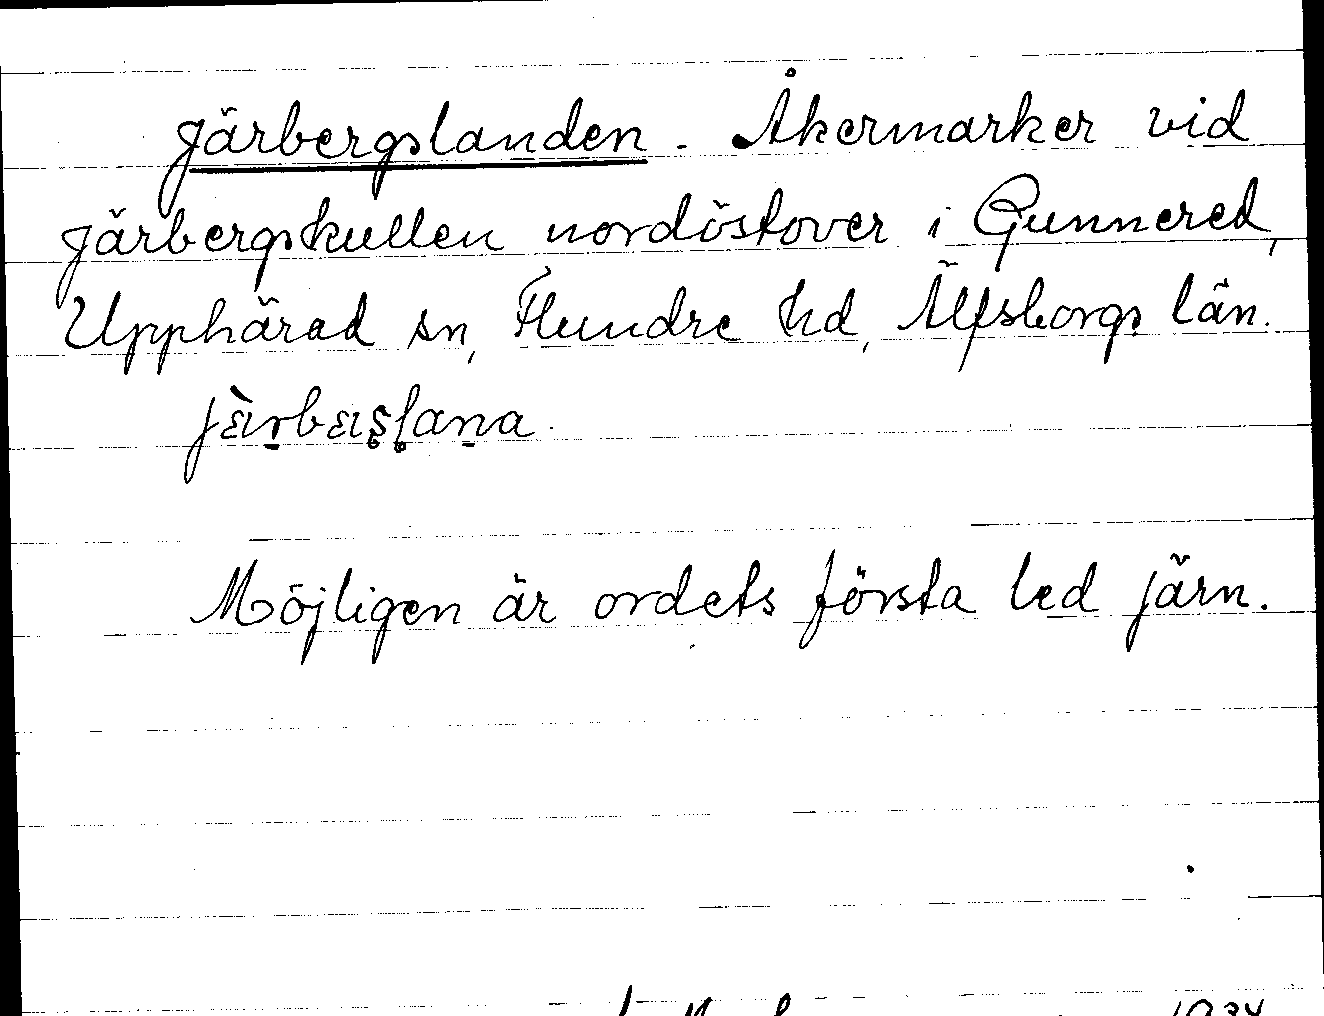 Järbergslanden. Åkermarker vid
Järbergskullen nordöstover i Gunnered,
Upphärad sn, Flundre hd, Älfsborgs län.
Möjligen är ordets första led järn.
1934